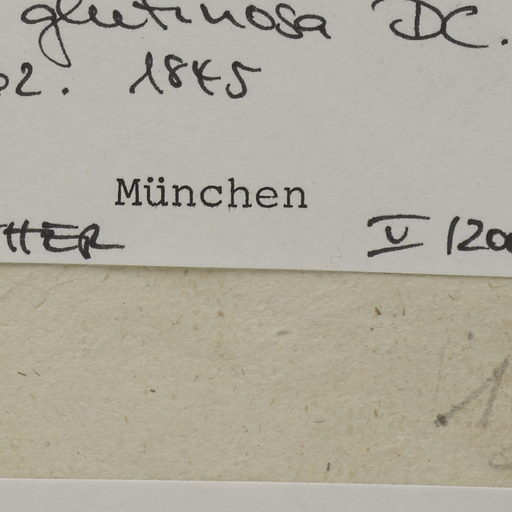 glutinosa DC.
02. 1845
München
THER V/200
1